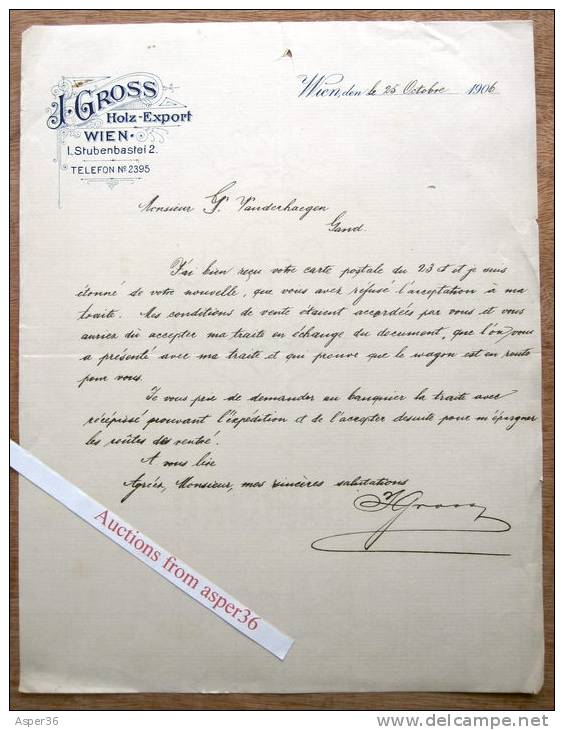 J. GROSS
Holz-Export
WIEN.
I. Stubenbastei 2.
TELEFON No 2395
Wien, den le 25 Octobre 1906
Monsieur G. Vanderhaegen
Gand.
J'ai bien reçu votre carte postale du 23 ct et je suis
étonné de votre nouvelle, que vous avez réfusé l'acceptation à ma
traite. Mes conditions de vente étaient accordées par vous et vous
auriez dû accepter ma traite en échange du document, que l'on vous
a présenté avec ma traite et qui prouve que le wagon est en route
pour vous.
Je vous prie de demander au banquier la traite avec
récépissé prouvant l'expédition et de l'accepter desuite pour m'épargner
les
A vous lire
Agréez, Monsieur, mes sincères salutations
J Gross
Auctions from asper36
Asper36
www.delcampe.net